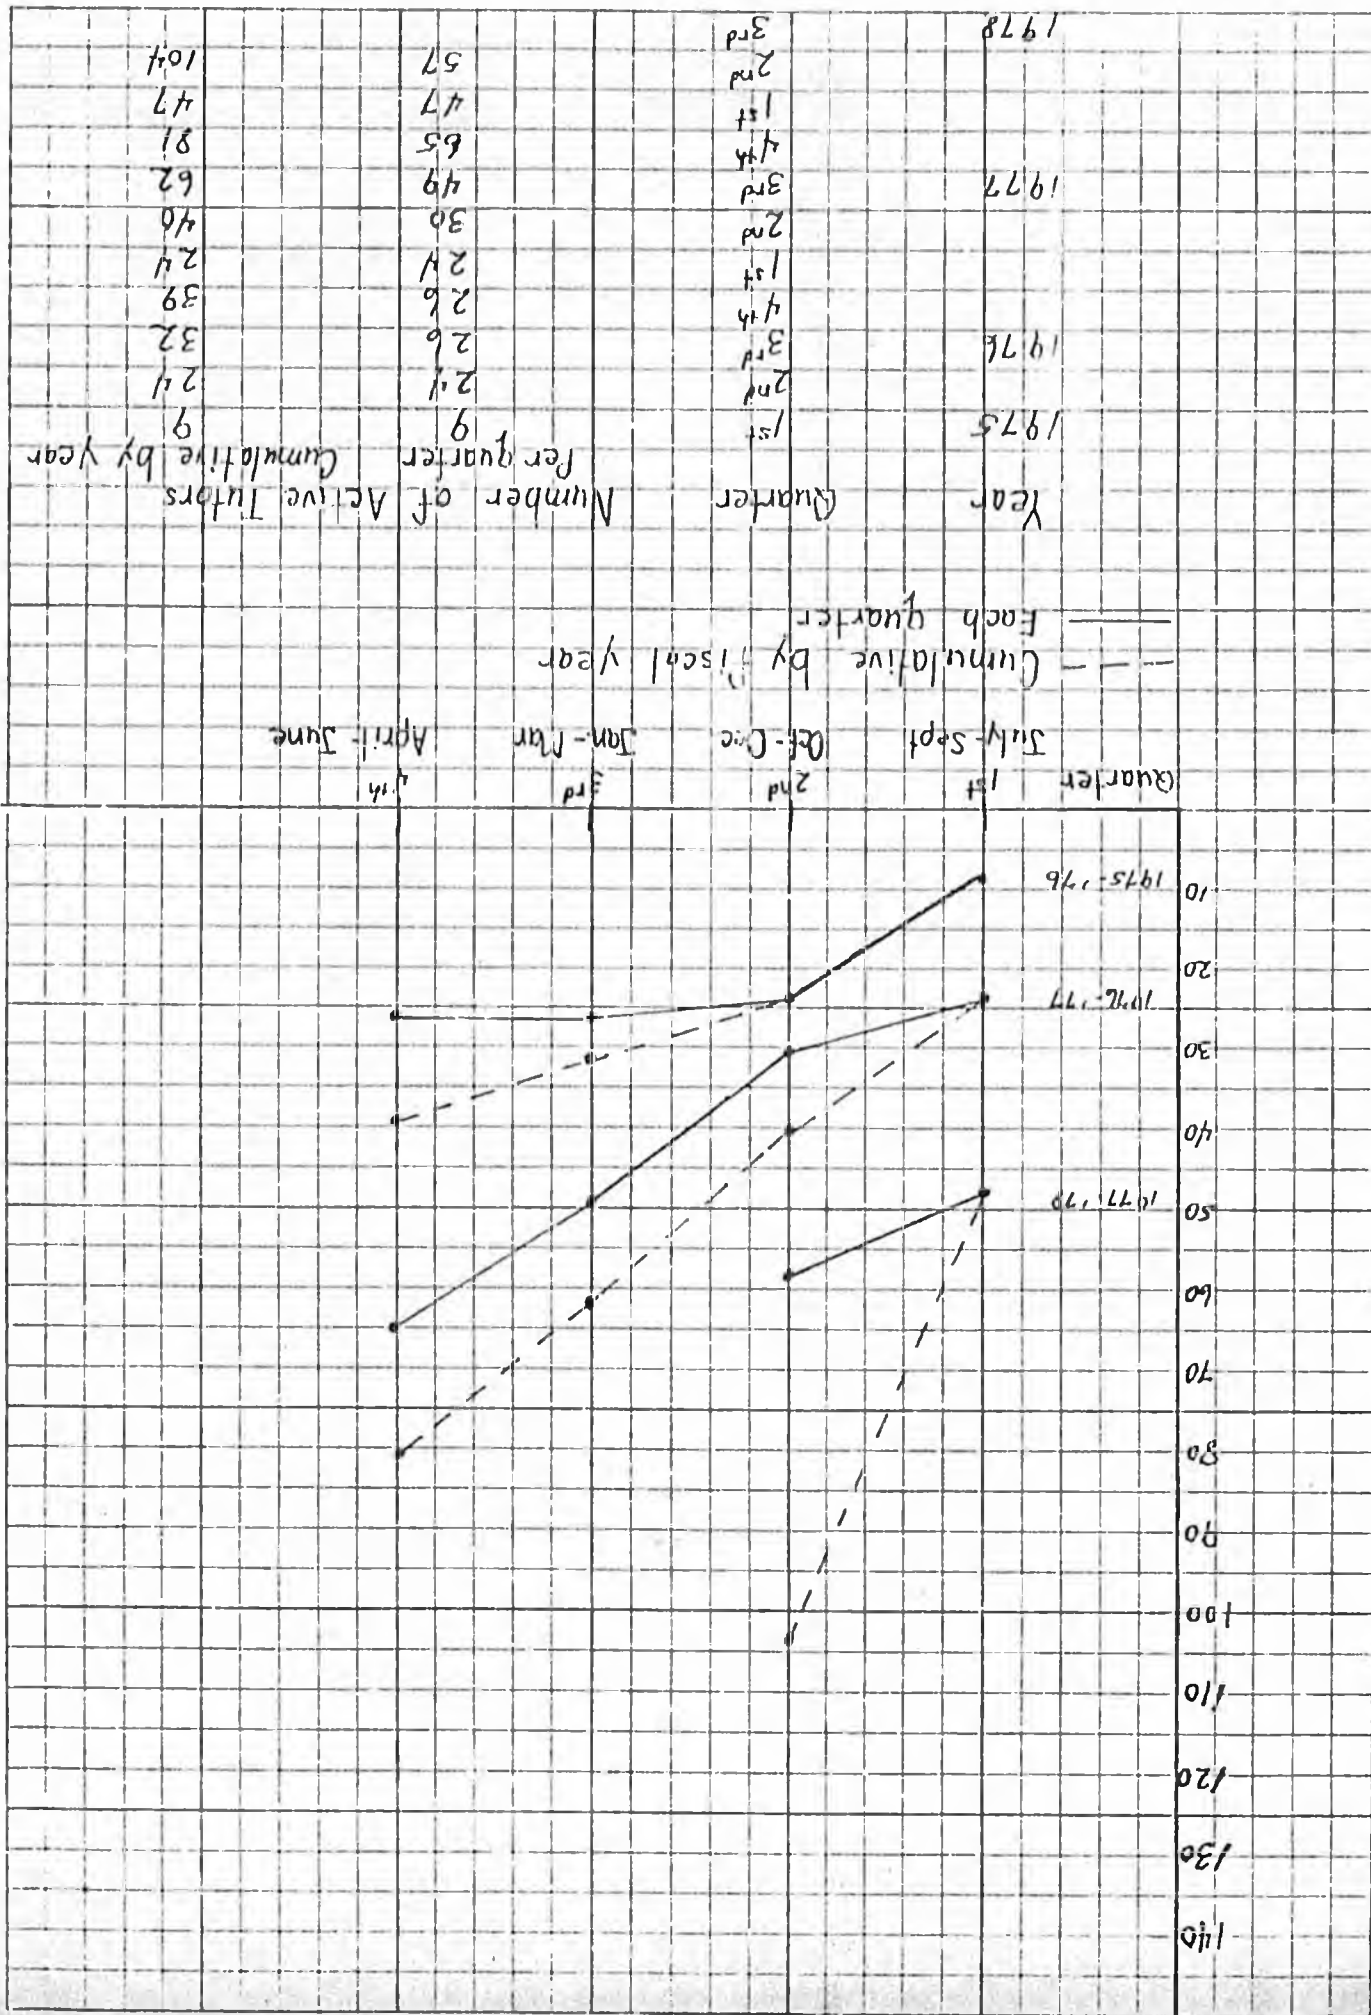 140
130
120
110
100
90
80
70
60
50
40
30
20
10
1977-'78
1976-'77
1975-'76
Quarter 1st 2nd 3rd 4th
July-Sept Oct-Dec Jan-Mar April-June
Cumulative by Fiscal year
Each quarter
Year Quarter Number of Active Tutors
Per quarter Cumulative by year
1975 1st 9 9
2nd 24 24
1976 3rd 26 32
4th 26 39
1st 24 24
2nd 30 40
1977 3rd 49 62
4th 65 81
1st 47 47
2nd 57 104
1978 3rd